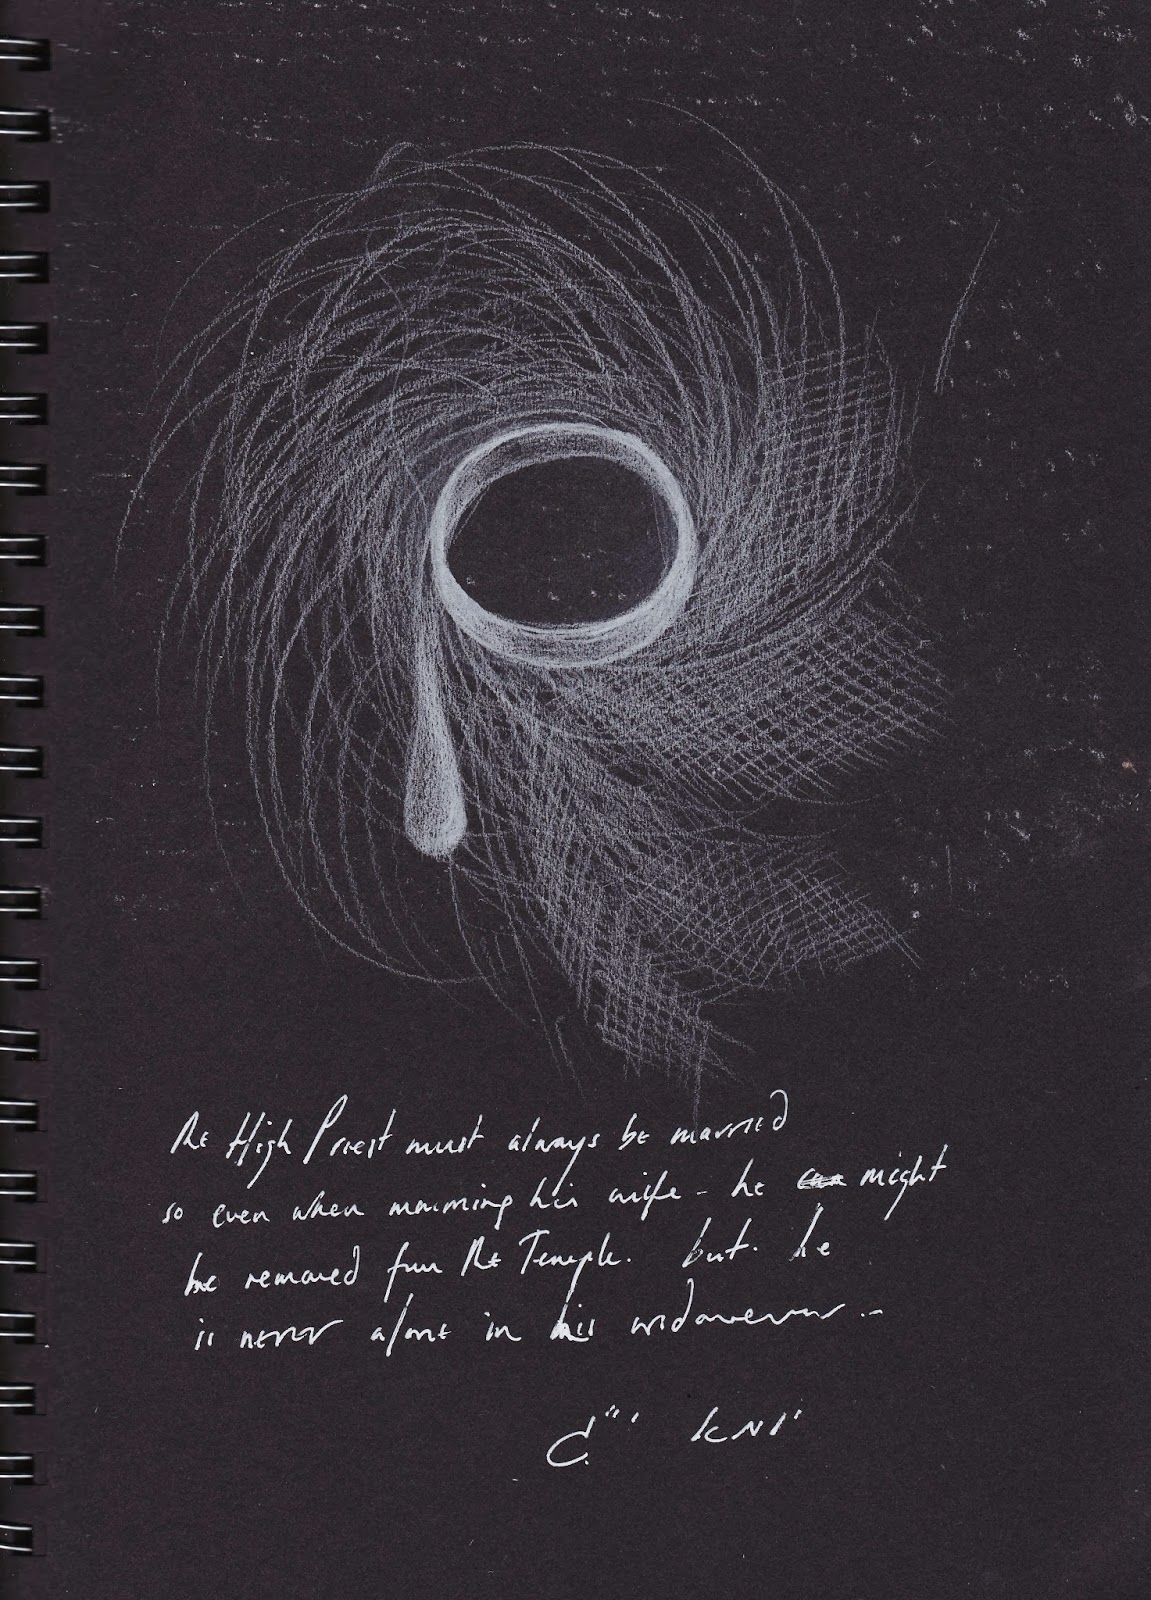 The High Priest must always be married
so even when mourning his wife - he might
be removed from the Temple. but. he
is never alone in his -
יומא